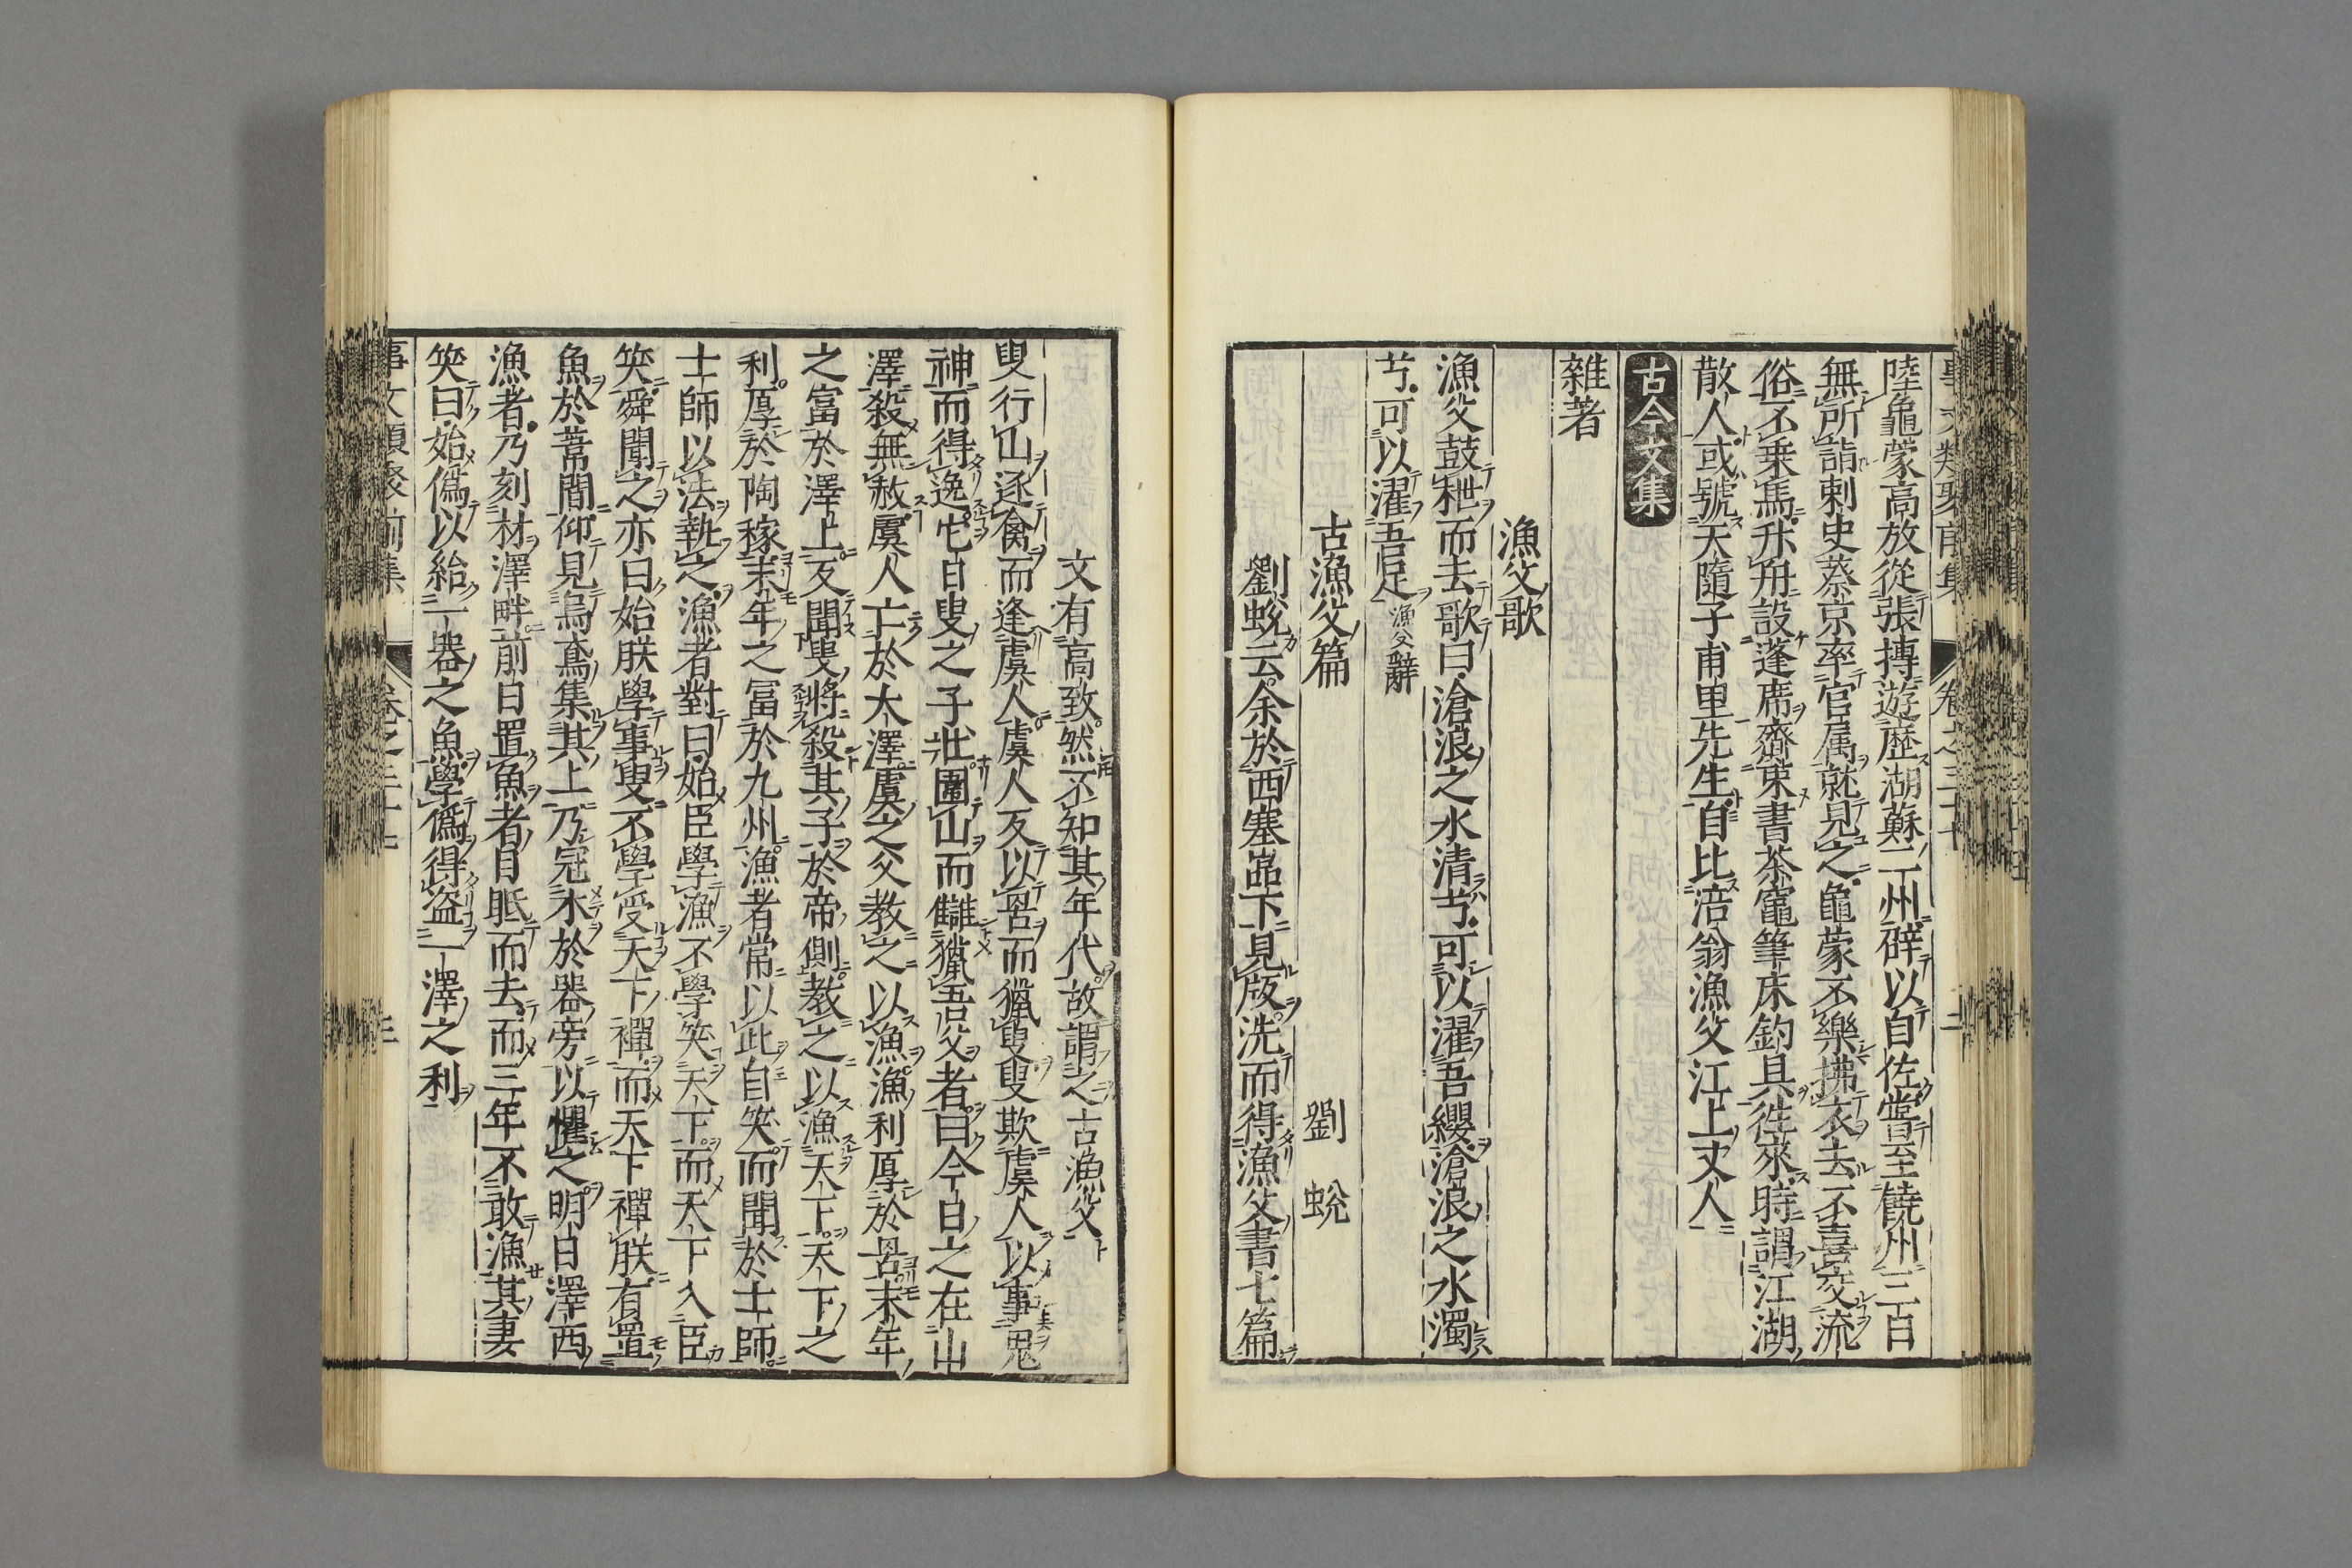 陸龜蒙高放從張搏遊歷湖蘇二州辟以自佐嘗至饒州三百
無所詣刺史蔡京率官属就見之龜蒙不樂拂衣去不喜交流
俗不乗馬升舟設蓬席齎束書茶竈筆床釣具徃來時謂江湖
散人或號天隨子甫里先生自比涪翁漁父江上丈人
古今文集
雜著
漁父歌
漁父鼓枻而去歌曰滄浪之水清兮可以濯吾纓滄浪之水濁
兮可以濯吾足漁父辭
古漁父篇 劉蛻
劉蛻云余於西塞嵓下見版洗而得漁父書七篇
文有高致然不知其年代故謂之古漁父
叟行山逐禽而逢虞人虞人反以罟而獵叟叟欺虞人以事鬼
神而得逸也曰叟之子壯圍山而讎獵吾父者曰今日之在山
澤殺無赦虞人亡於大澤虞之父教之以漁漁利厚於罟末年
之富於澤上反聞叟將殺其子於帝側教之以漁天下天下之
利厚於陶稼末年之冨於九州漁者常以此自笶而聞於士師
士師以法執之漁者對曰始臣學漁不學笶天下而天下久臣
笶舜聞之亦曰始朕學事叟不學受天下禪而天下禪朕有置
魚於葦間仰見烏鳶集其上乃冠木於器旁以懼之明日澤西
漁者乃刻材澤畔前日置魚者目眂而去而三年不敢漁其妻
笶曰始僞以給一器之魚學僞得盗一澤之利
事文類聚前集 卷之三十七 三